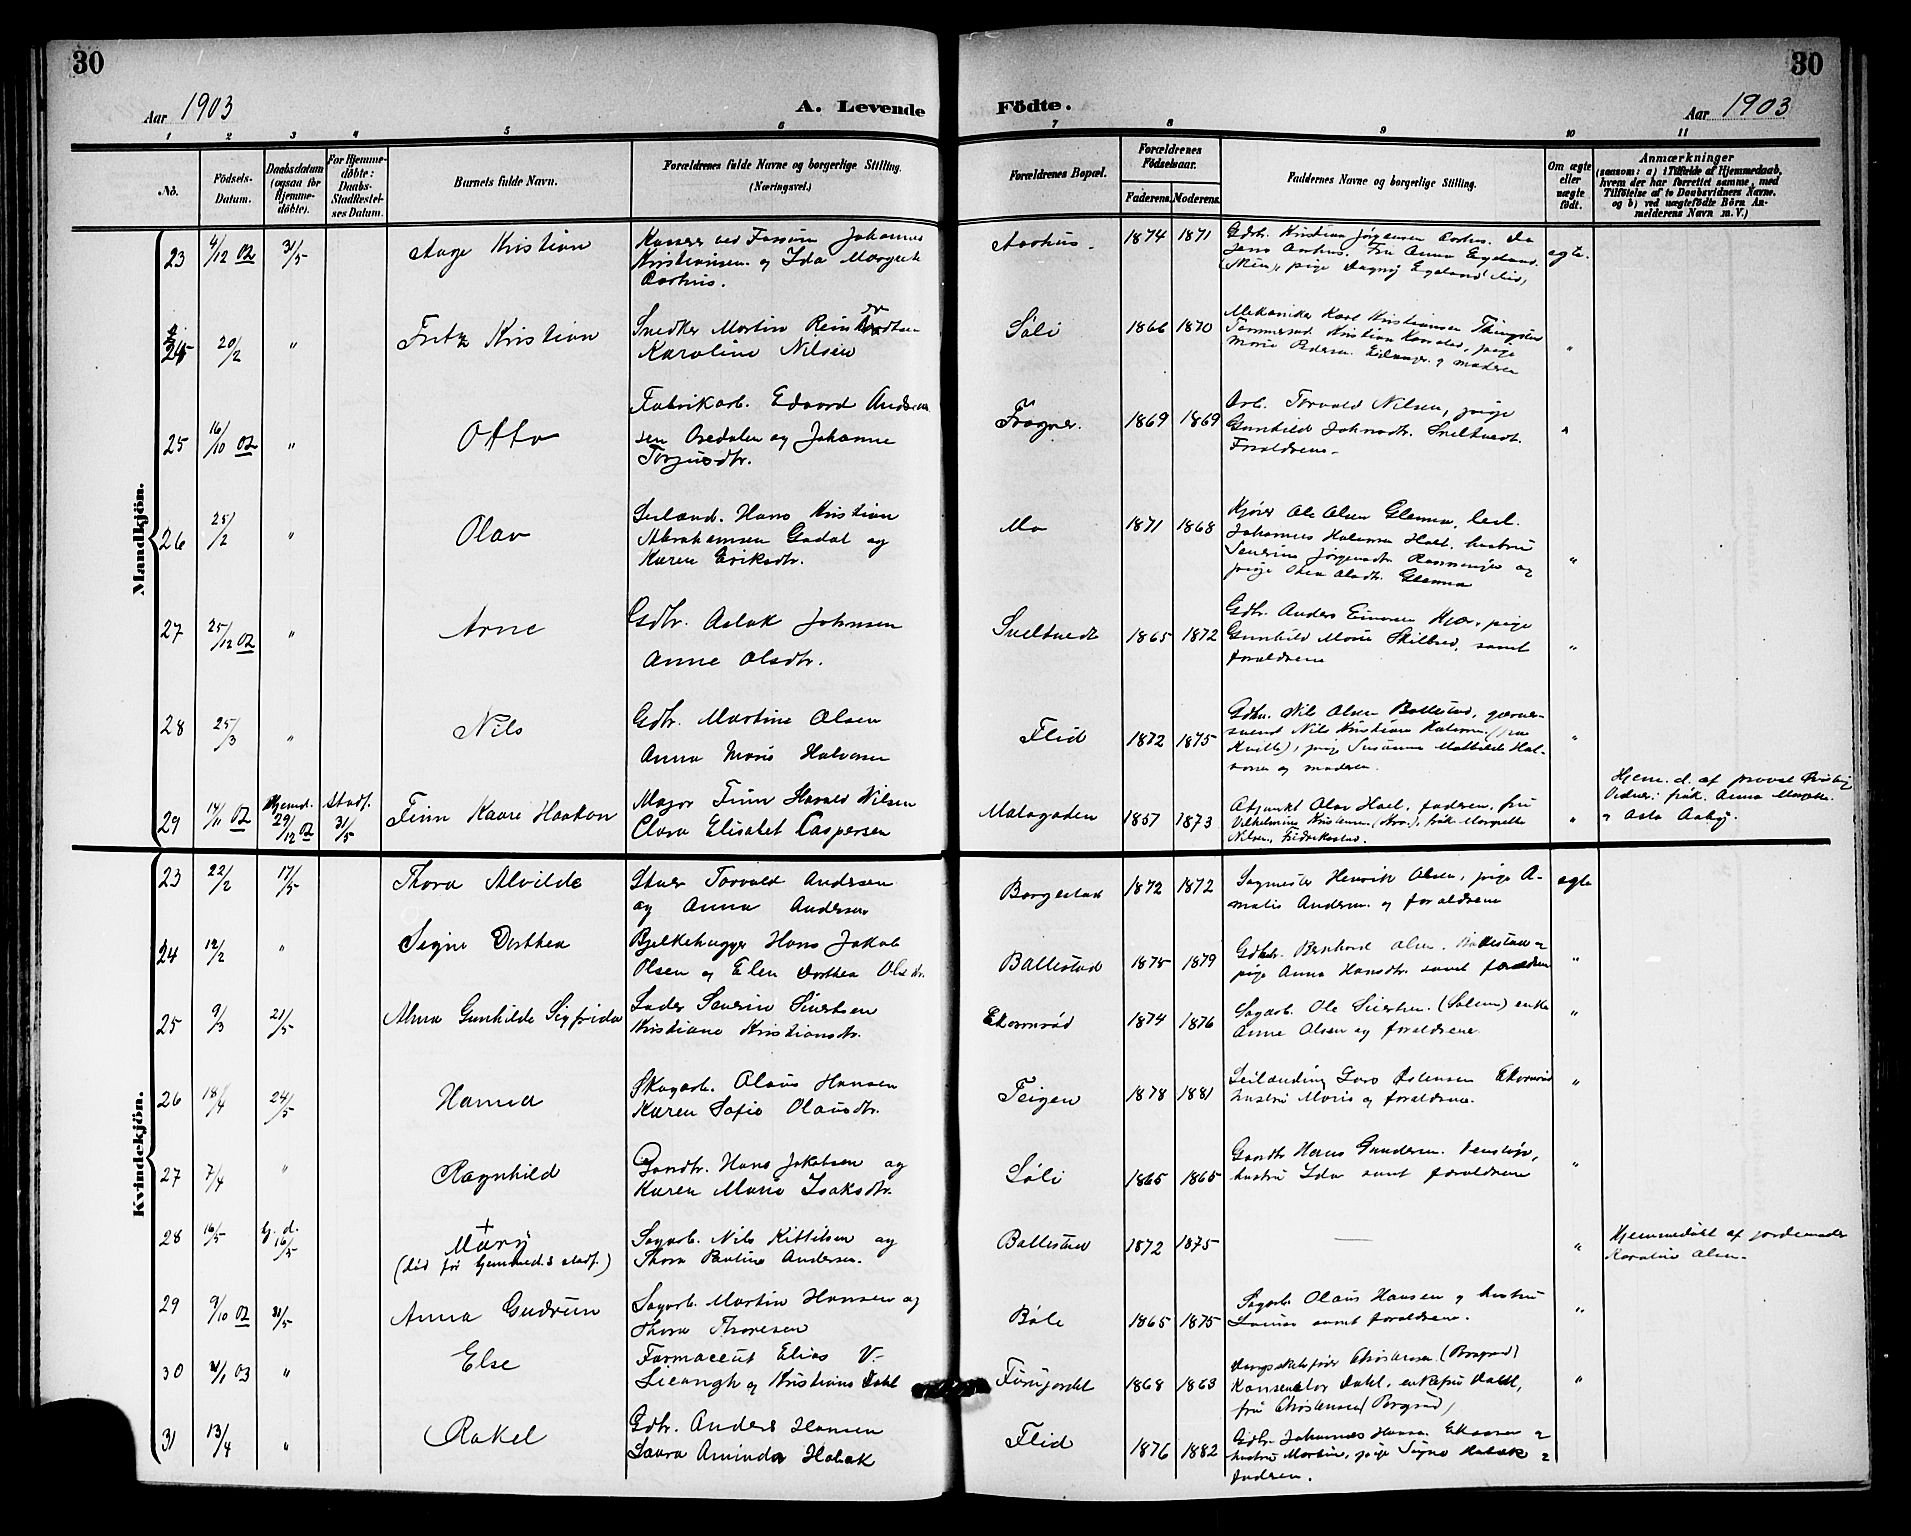 30
30
Aar 1903
A. Levende
Födte.
Aar 1903
1 2 3 4 5 6 7 8 9 10 11
No.
Födsels-
Datum.
Daabsdatum
(ogsaa for
Hjemme-
döbte).
For Hjemme-
döbte:
Daabs-
Stadfestel-
ses Datum.
Barnets fulde Navn.
Forældrenes fulde Navne og borgerlige Stilling.
(Næringsvei.)
Forældrenes Bopæl.
Forældrenes
Födselsaar.
Faderens. Moderens.
Faddernes Navne og borgerlige Stilling.
Om ægte
eller
uægte
födt.
Anmærkninger
(saasom: a) i Tilfælde af Hjemmedaab,
hvem der har forrettet samme, med
Tilföielse af to Daabsvidners Navne,
og b) ved uægtefödte Börn An-
melderens Navn m. V.)
Mandkjön.
23 4/12 02 31/5 Aage Kristian
Kasserer ved Fossum Johannes
Kristiansen og Ida Margrete
Aarhus.
Aarhus. 1874 1871
Gdbr. Kristian Jörgensen Aarhus.
Jens Aarhus. Fru Anna Egeland
(Skien), pige Dagny Egeland
ægte.
24 20/2 " Fritz Kristian
Snedker Martin
Karoline Nilsen
Söli 1866 1870
Mekaniker Karl Kristiansen
Tömmermd. Kristian
Marie Pedersen Eidanger og moderen
"
25 16/10 02 " Otto
Fabrikarb. Edvard Ander-
sen Aredalen og Johanne
Torjusdtr.
Frogner. 1869 1869
Arb. Torvald Nilsen, pige
Gunhild Johnsdtr. Sneltvedt.
Forældrene.
"
26 25/2 " Olav
Leiland. Hans Kristian
Abrahamsen Gadal og
Karen Eriksdtr.
Mo 1871 1868
Kjörer Ole Olsen Glenna,
Johannes Halvorsen hustru
Severine Jörgensdtr. og
pige Olsdtr. Glenna
"
27 25/12 02 " Arne
Gdbr. Aslak Johnsen
Anne Olsdtr.
Sneltvedt 1865 1872
Gdbr. Anders Einarsen pige
Gunhild Marie Skilbred, samt
forældrene
"
28 25/3 " Nils
Gdbr. Martin Olsen
Anna Marie Halvorsen
Flid 1872 1875
Gdbr. Nils Olsen Ballestad, garver-
svend Nils Kristian Halvorsen (fra
Kville), pige Susanne Mathilde Hal-
vorsen og moderen.
"
29 14/11 02 Hjemd. 29/12 02 Stadf. 31/5 Finn Kaare Haakon
Major Finn Harald Nilsen
Clara Elisabet Caspersen
Malagaden 1857 1873
Adjunkt Olav Hoel, faderen, fru
Vilhelmine Kristensen frk. Margrethe
Nilsen, Fredrikstad.
"
Hjem. d. af provst
Vidner: frök. Anna Margrethe
" Asta Aaby.
Kvindekjön.
23 22/2 17/5 Thora Alvilde
Stuer Torvald Andersen
og Anna Andersen
Borgestad 1872 1872
Sagmester Henrik Olsen, pige A-
malie Andersen og forældrene
ægte
24 12/2 " Signe Dorthea
Bjelkehugger Hans Jakob
Olsen og Elen Dorthea Olsdtr.
Ballestad 1875 1879
Gdbr. Bernhard Olsen Ballestad og
pige Anna Hansdtr. samt forældrene
"
25 9/3 21/5 Alma Gunhilde Sigfrida
Lader Severin Sivertsen
Kristiane Kristiansdtr.
Ekornröd 1874 1876
Sagarb. Ole Sivertsen. (Solum) enke
Anne Olsen og forældrene.
"
26 18/4 24/5 Hanna
Skogarb. Olaus Hansen
Karen Sofie Olausdtr.
Teigen 1878 1881
Leilænding Lars Ekornröd
hustru Marie og forældrene.
"
27 7/4 " Ragnhild
Gaardbr. Hans Jakobsen og
Karen Marie Isaksdtr.
Söli 1865 1865
Gaardbr. Hans Gundersen. Venstöp,
hustru Ida samt forældrene
"
28 16/5 Hj. d. 16/5 + Mary
(död för hjemmed.s stadf.)
Sagarb. Nils Kittilsen og
Thora Pauline Andersen.
Ballestad 1872 1875
—
"
Hjemmedöbt af jordemoder
Karoline Olsen.
29 9/10 02 31/5 Anna Gudrun
Sagarb. Martin Hansen og
Thora Thoresen
Böle 1865 1875
Sagarb. Olaus Hansen og hustru
Lovise samt forældrene.
"
30 /1 03 " Else
Farmaceut Elias V.
og Kristiane Dahl
Furugjordet 1868 1863
Christensen (Borgestad)
Dahl, enkefru Dahl,
fru Christensen (Borgestad)
"
31 13/4 " Rakel
Gdbr. Anders Hansen
Laura Aminda Habek
Flid 1876 1882
Gdbr. Johannes Hansen Ekornröd og
hustru Martine, pige Signe Habek og
faderen.